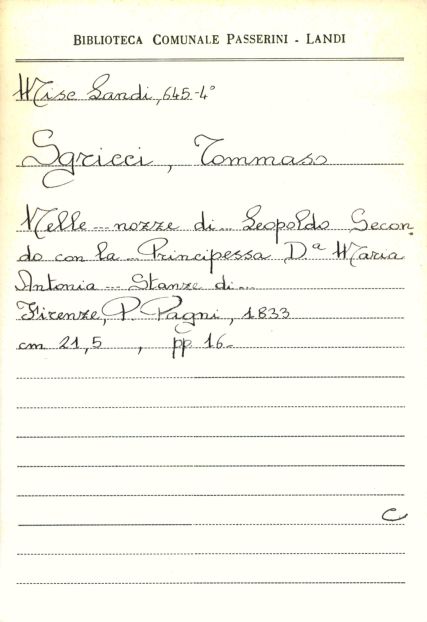 BIBLIOTECA COMUNALE PASSERINI - LANDI
Misc Landi, 645-4°
Sgricci, Tommaso
Nelle ... nozze di ... Leopoldo Secon-
do con la ... Principessa D.ª Maria
Antonia ... Stanze di ...
Firenze, P. Pagni, 1833
cm 21,5 , pp 16-
C